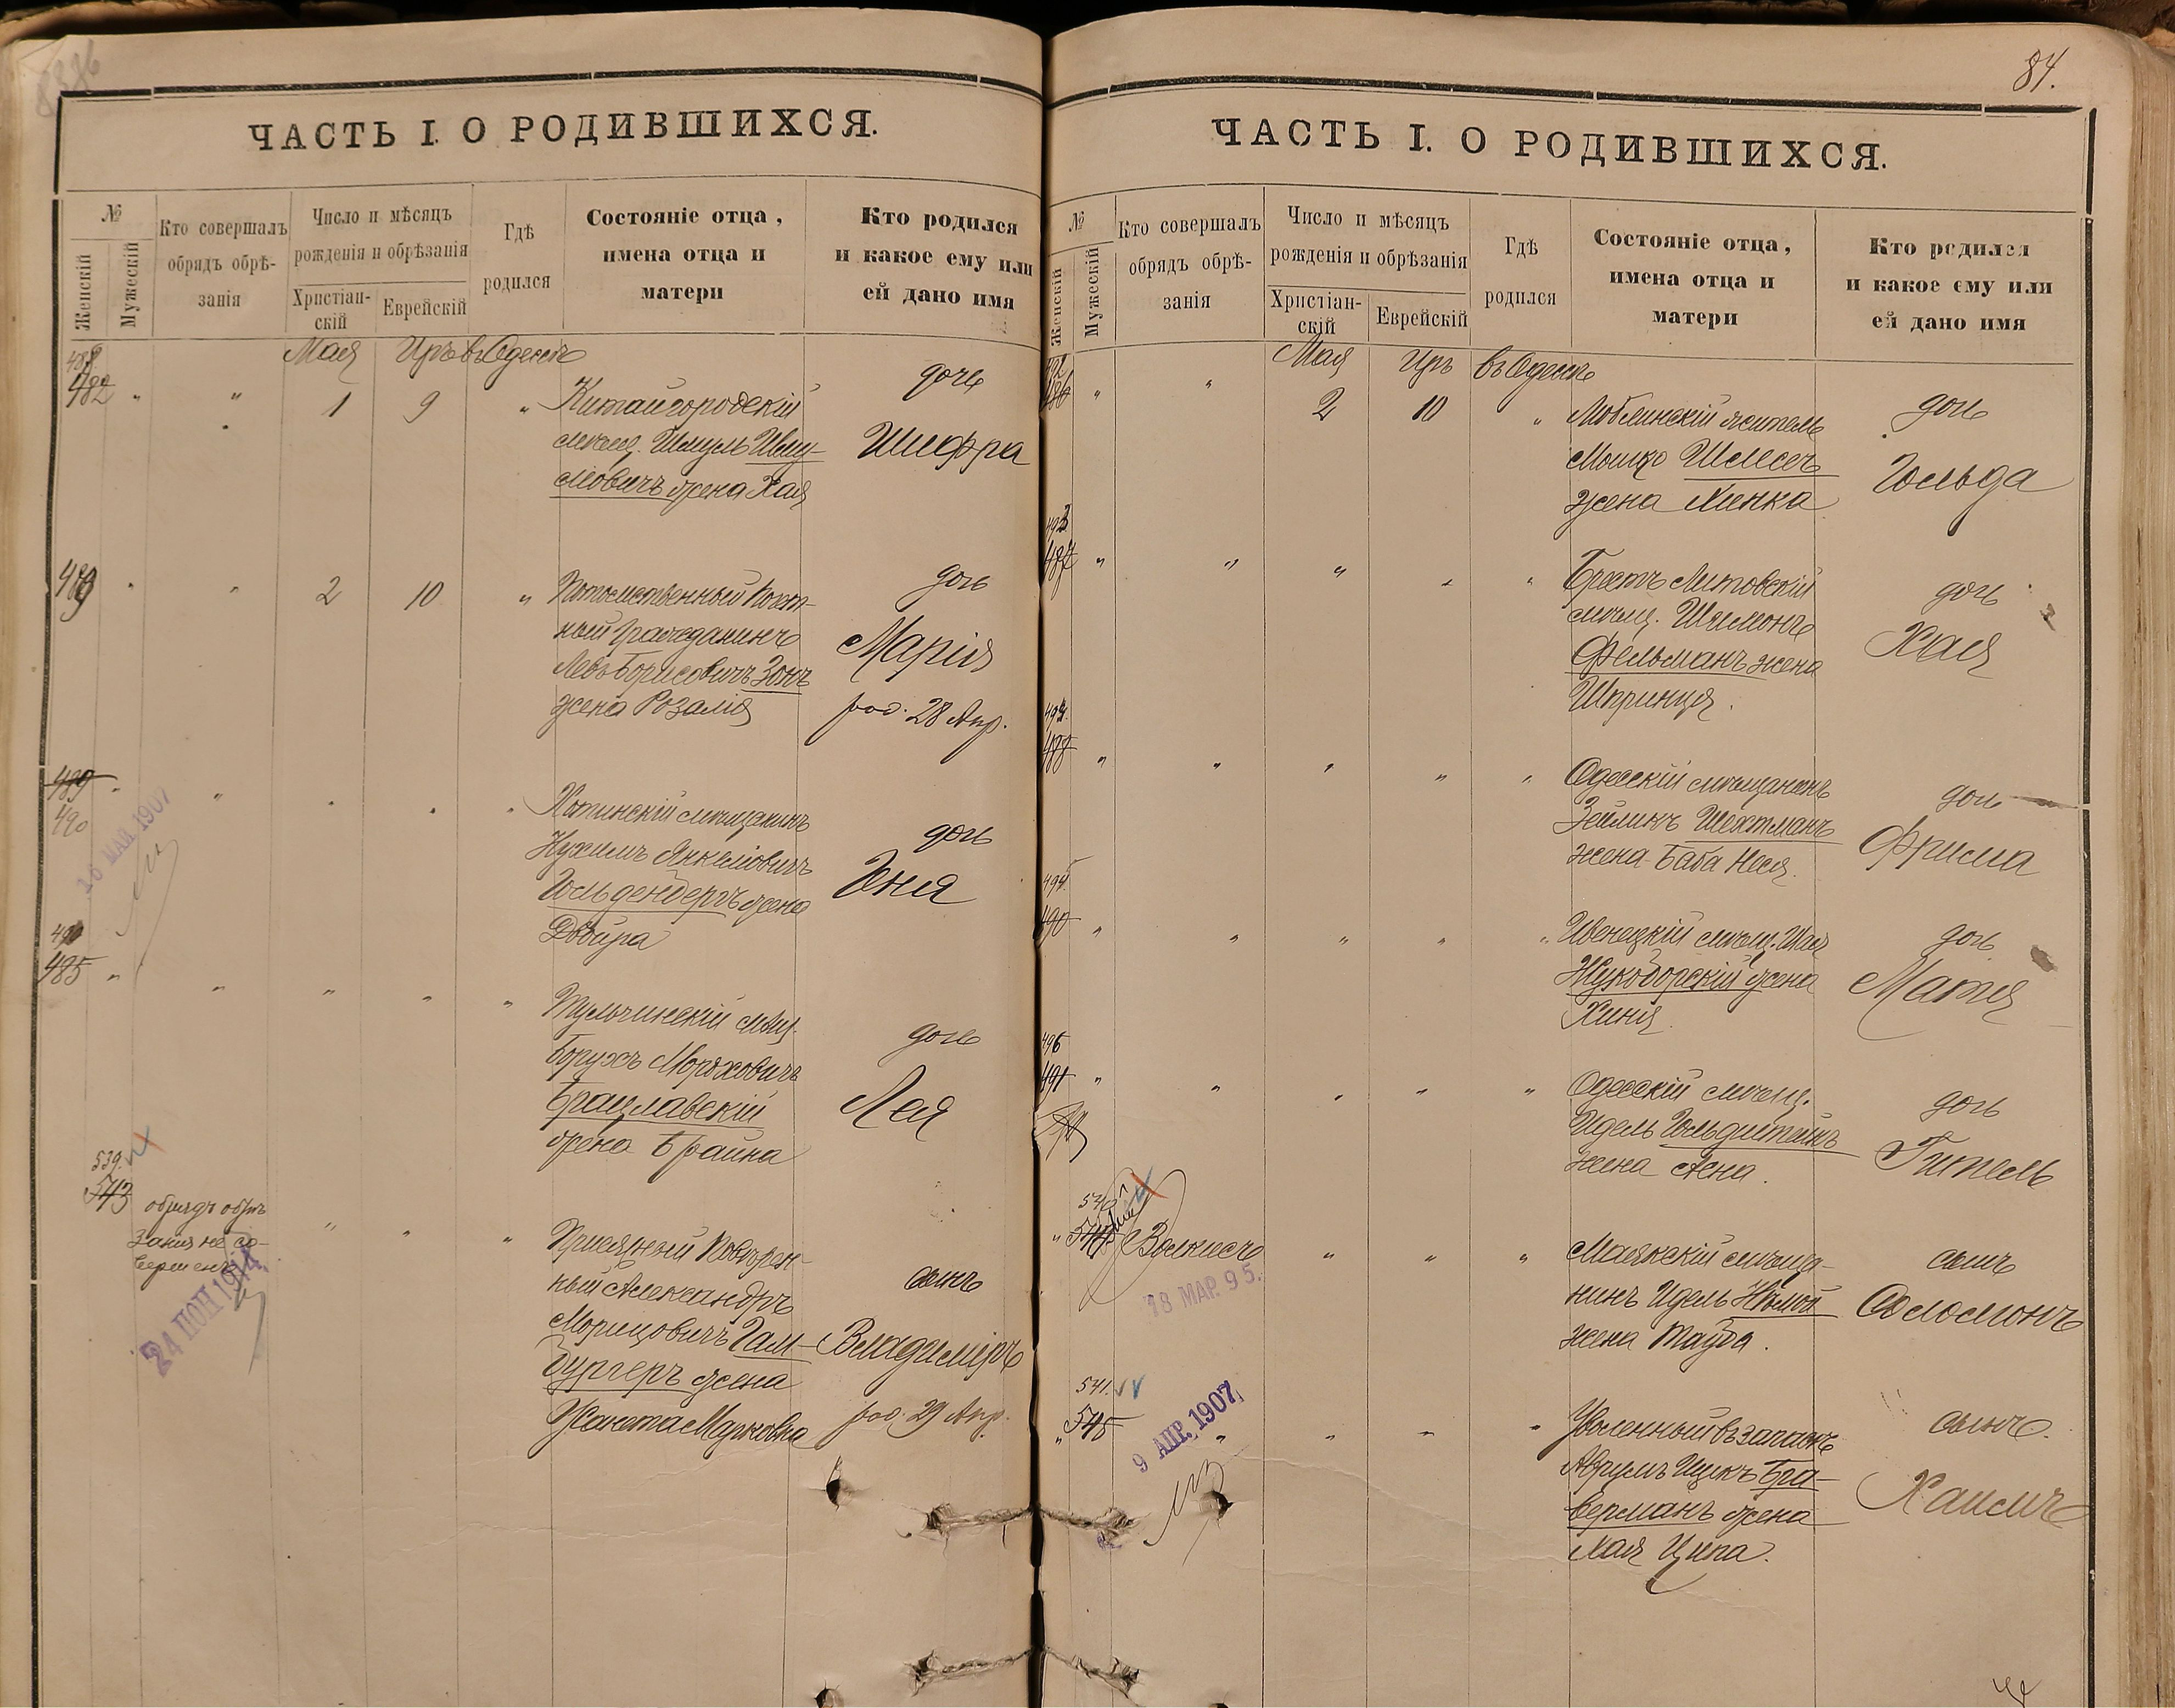 84.
ЧАСТЬ I. О РОДИВШИХСЯ.
№
Женскій
Мужескій
Кто совершалъ
обрядъ обрѣ-
занія
Число и мѣсяцъ
рожденія и обрѣзанія
Христіан-
скій
Еврейскій
Гдѣ
родился
Состояніе отца,
имена отца и
матери
Кто родился
и какое ему или
ей дано имя
Мая Иръ въ Одессѣ
482 " " 1 9 "
Китайгородскій
мѣщ. Шмуль Шму-
левичъ жена Хая
дочь
Шифра
489 " " 2 10 "
Потомственный Почет-
ный Гражданинъ
Левъ Борисовичъ Зонъ
жена Розалія
дочь
Марія
род. 28 Апр.
489
490
МАЯ 1907
Хотинскій мѣщанинъ
Нухимъ Янкелевичъ
Гольденбергъ жена
Двойра
дочь
Геня
485 " " " " "
Тульчинскій мѣщ.
Борухъ Мордховичъ
Брацлавскій
жена Брайна
дочь
Лея
539.
543
обрядъ обрѣ-
занія не со-
вершенъ
24 1914
Присяжный Повѣрен-
ный Александръ
Морицовичъ Гам-
бургеръ жена
Жанета Марковна
сынъ
Владиміръ
род. 29 Апр.
ЧАСТЬ I. О РОДИВШИХСЯ.
№
Женскій
Мужескій
Кто совершалъ
обрядъ обрѣ-
занія
Число и мѣсяцъ
рожденія и обрѣзанія
Христіан-
скій
Еврейскій
Гдѣ
родился
Состояніе отца,
имена отца и
матери
Кто родился
и какое ему или
ей дано имя
Мая Иръ въ Одессѣ
492
486 " " 2 10 "
Люблинскій житель
Мошко
жена Хинка
дочь
Гольда
493
487 " " " " "
Брестъ Литовскій
мѣщ. Шлемонъ
Фельманъ жена
Шпринця.
дочь
Хая
494.
488 " " " " "
Одесскій мѣщанинъ
Зейликъ Шехтманъ
жена Баба Неся.
дочь
Фрима
490 " " " " "
Ивенецкій мѣщ. Шая
Жукоборскій жена
Хиня.
дочь
Матя
496
491 " " " " "
Одесскій мѣщ.
Идель Гольдштейнъ
жена Лена.
дочь
Гитель
540
" 544
18 МАР. 95.
Маякскій мѣща-
нинъ Идель Нѣмой
жена Тауба.
сынъ
Соломонъ
541.
" 545
9 АПР. 1907
Уволенный въ запасъ
Аврумъ Ицикъ Бра-
верманъ жена
Хая Ципа.
сынъ.
Хаимъ